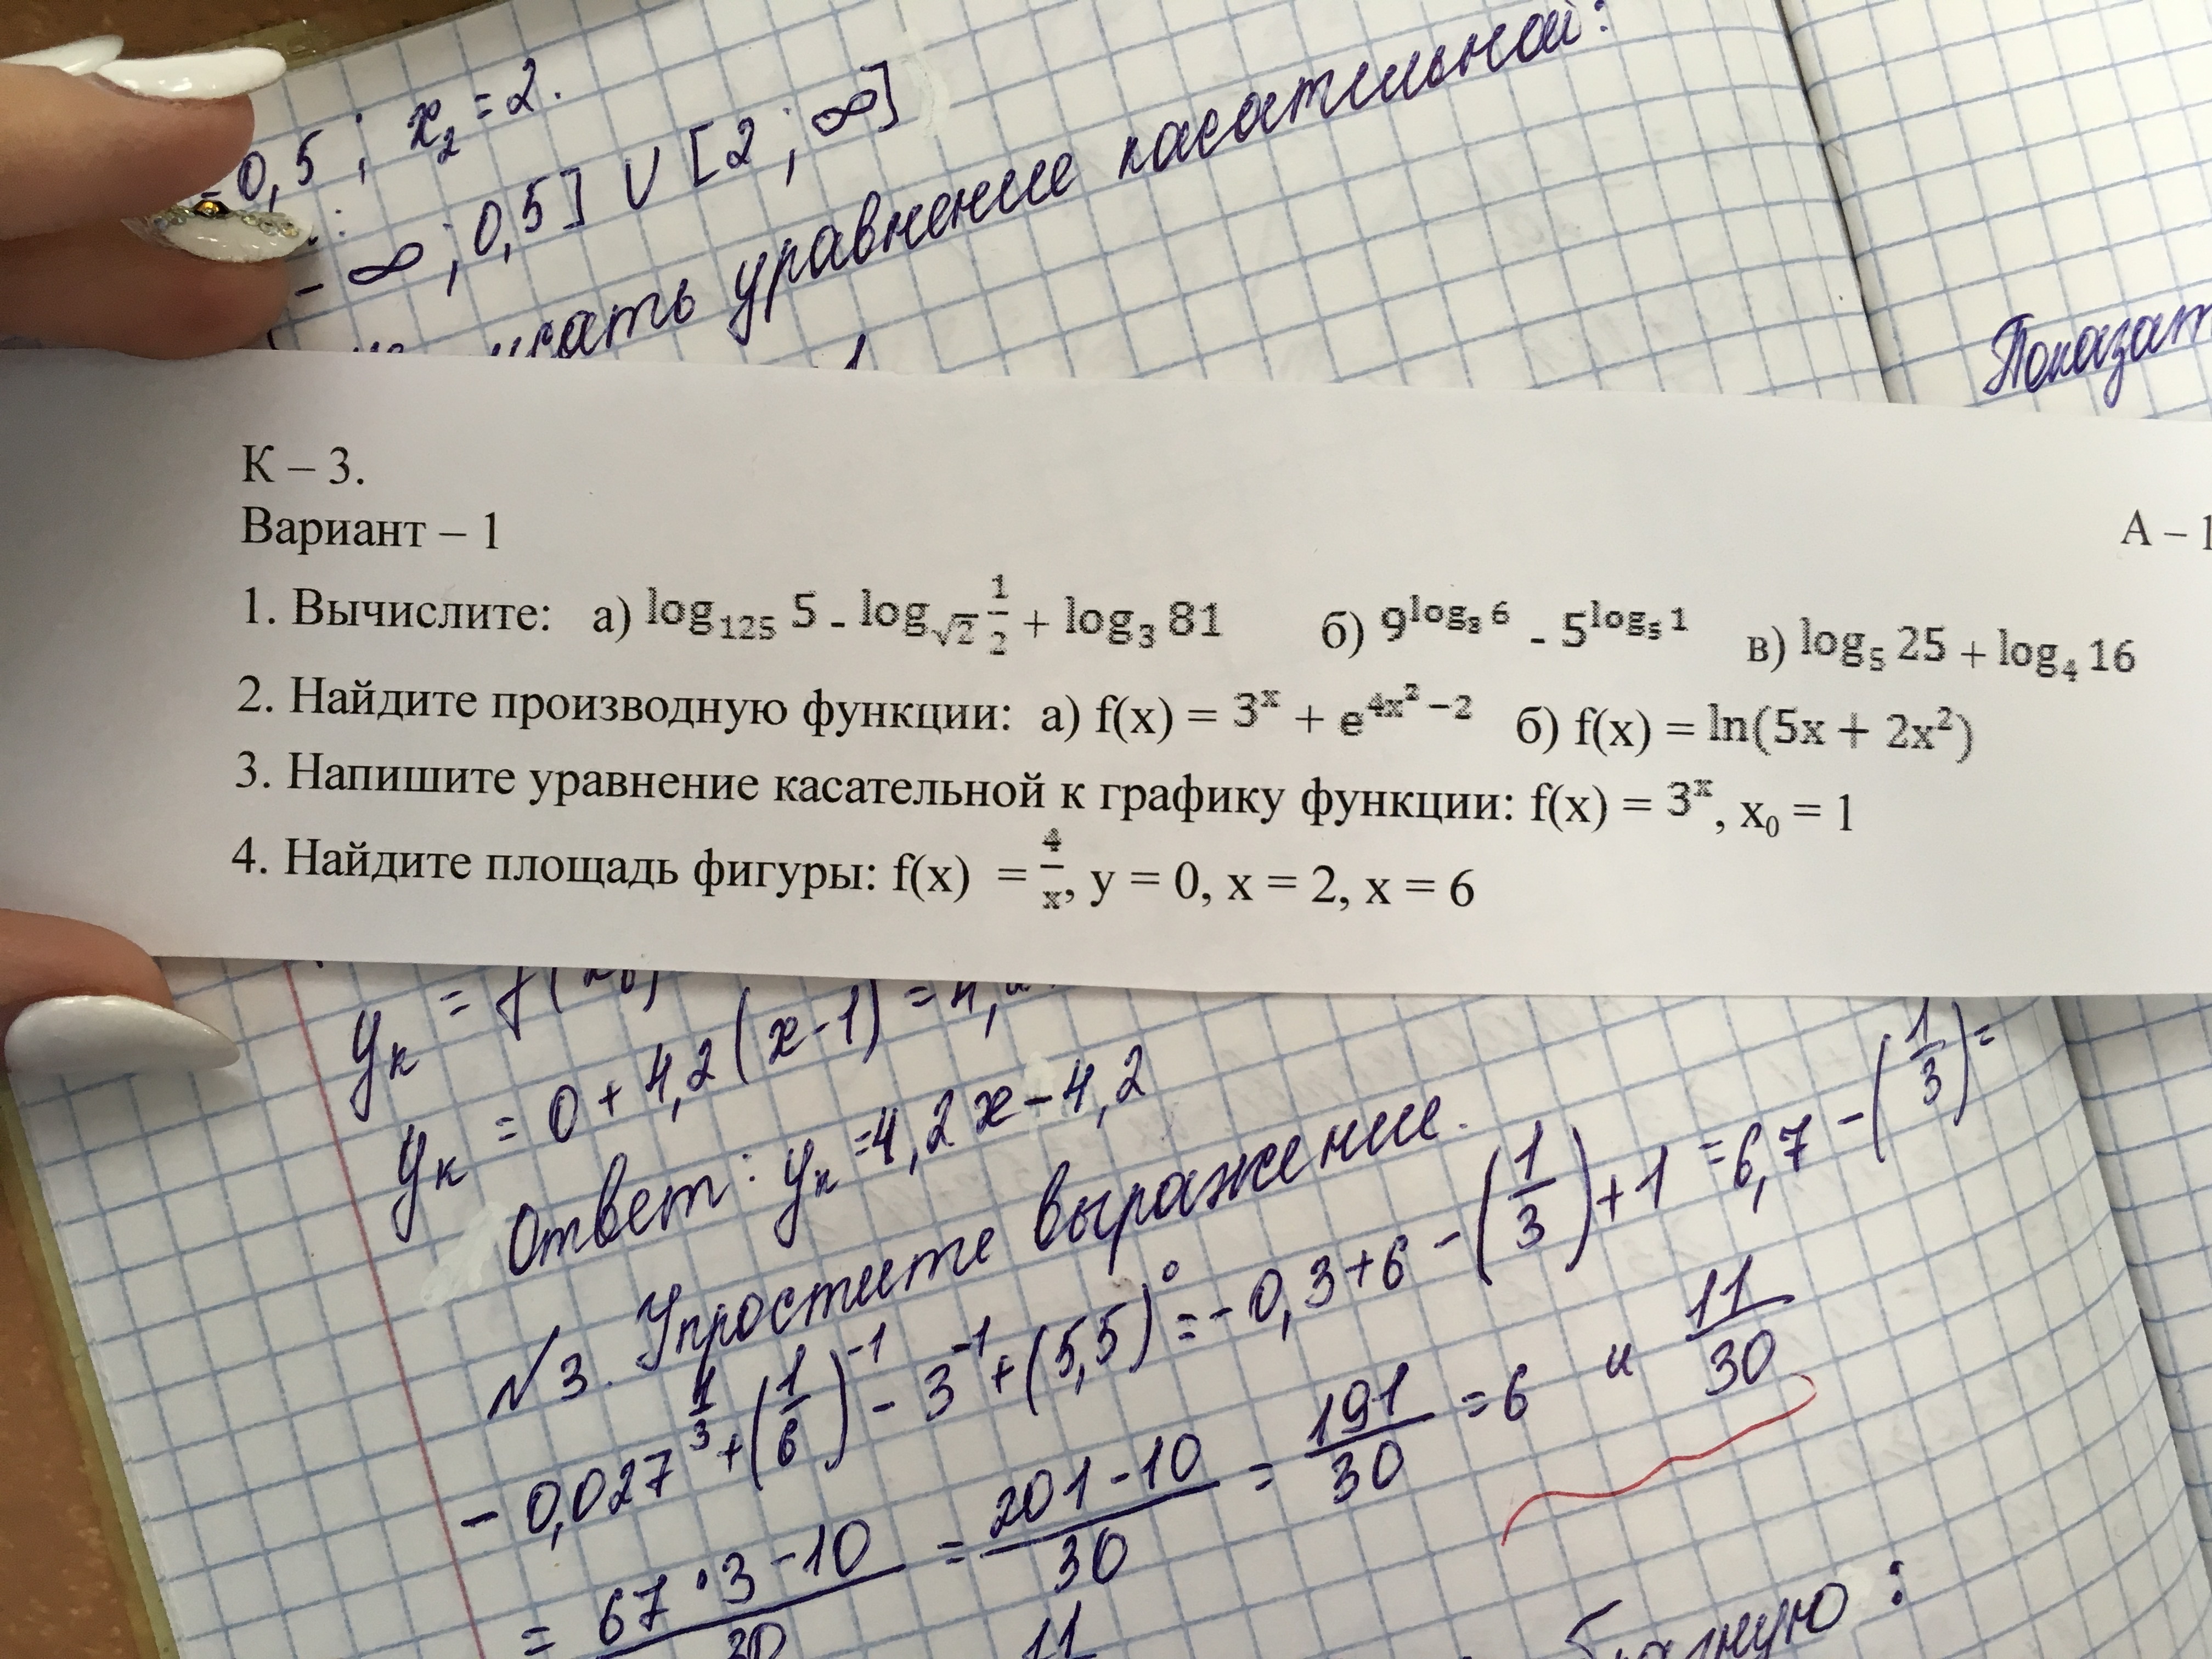 0,5 ; x₂ = 2.
- ∞ ; 0,5] ∪ [2 ; ∞]
уравнение касательной:
Показат
К – 3.
Вариант – 1
А – 1
1. Вычислите: а) log₁₂₅ 5 - log_√2 1/2 + log₃ 81 б) 9^(log₃ 6) - 5^(log₅ 1) в) log₅ 25 + log₄ 16
2. Найдите производную функции: а) f(x) = 3^x + e^(4x² − 2) б) f(x) = ln(5x + 2x²)
3. Напишите уравнение касательной к графику функции: f(x) = 3^x, x₀ = 1
4. Найдите площадь фигуры: f(x) = 4/x, y = 0, x = 2, x = 6
yк = f(x₀)
yк = 0 + 4,2 (x-1) = 4,2
Ответ: yк = 4,2x - 4,2
№3. Упростите выражение.
- 0,027^(1/3) + (1/6)^(-1) - 3^(-1) + (5,5)^0 = - 0,3 + 6 - (1/3) + 1 = 6,7 - (1/3) =
= (67 · 3 - 10)/30 = (201 - 10)/30 = 191/30 = 6 и 11/30
11